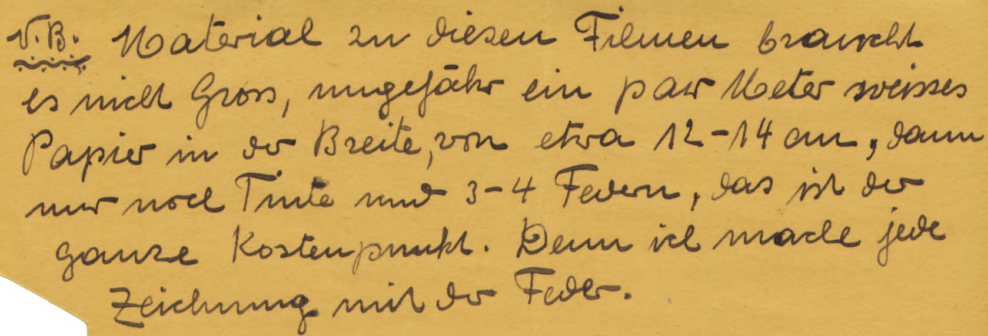 N.B. Material zu diesen Filmen braucht
es nicht Gross, ungefähr ein paar Meter weisses
Papier in der Breite, von etwa 12-14 cm, dann
nur noch Tinte und 3-4 Federn, das ist der
ganze Kostenpunkt. Denn ich mache jede
Zeichnung mit der Feder.